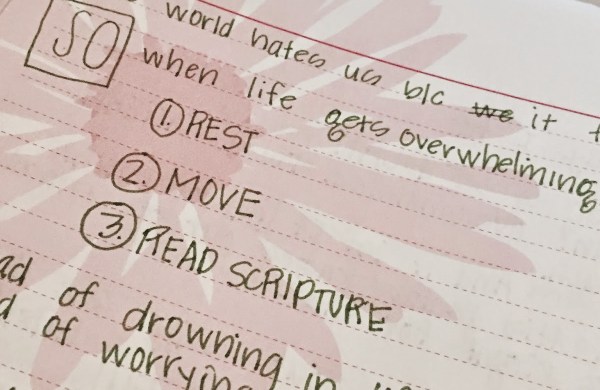 world hates us b/c we it
SO when life gets overwhelming
1. REST
2. MOVE
3. READ SCRIPTURE
of drowning in
of worrying